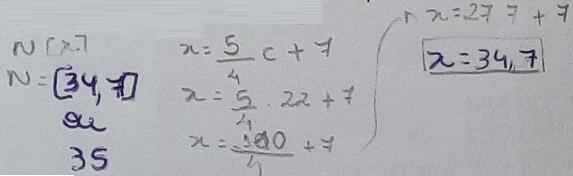 N [x.7
N = [34,7]
ou
35
x = 5/4 c + 7
x = 5/4 . 22 + 7
x = 110/4 + 7
x = 27 7 + 7
x = 34,7